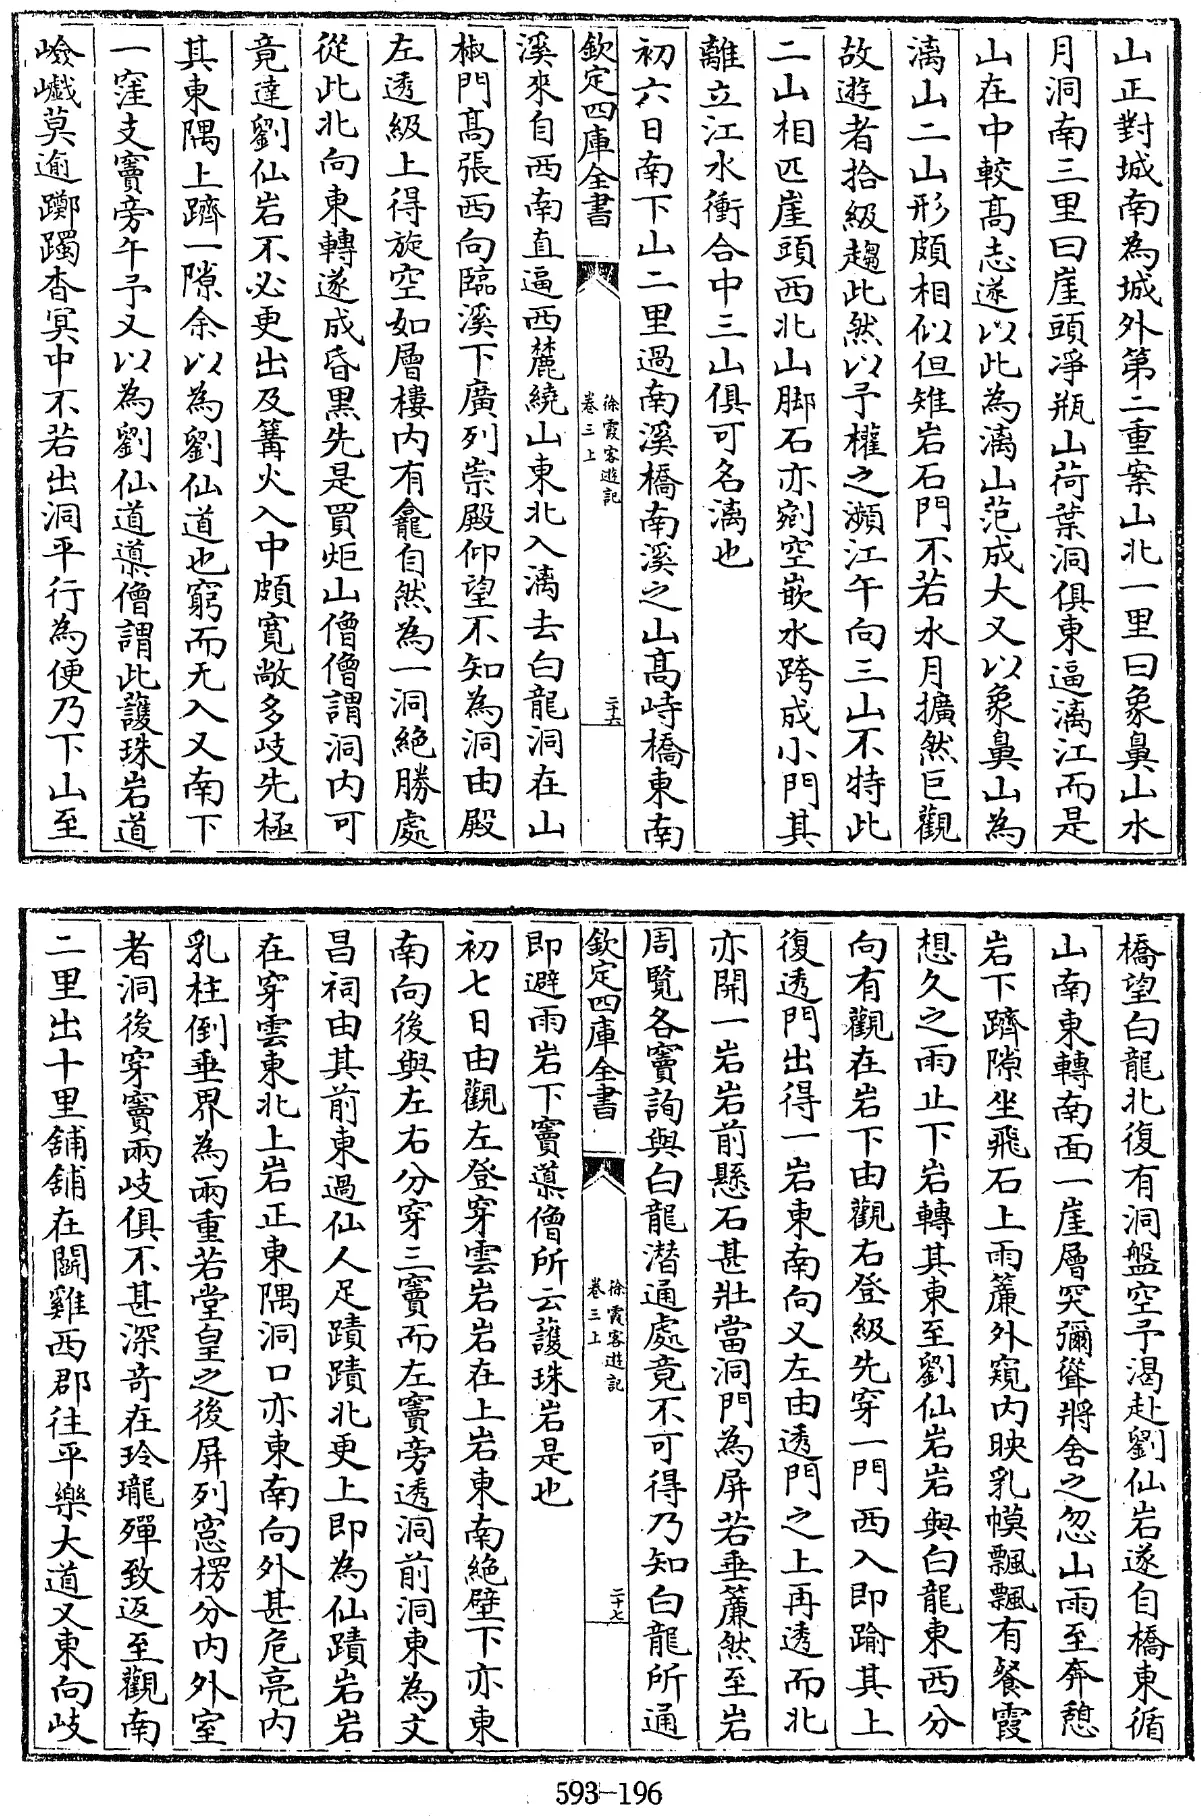 山正對城南為城外第二重案山北一里曰象鼻山水
月洞南三里曰崖頭凈瓶山荷葉洞俱東逼漓江而是
山在中較髙志遂以此為漓山范成大又以象鼻山為
漓山二山形頗相似但雉岩石門不若水月擴然巨觀
故遊者拾級趨此然以予權之瀕江午向三山不特此
二山相匹崖頭西北山脚石亦剜空嵌水跨成小門其
離立江水衝合中三山俱可名漓也
初六日南下山二里過南溪橋南溪之山髙峙橋東南
欽定四庫全書
徐霞客遊記
卷三上
二十六
溪來自西南直逼西麓繞山東北入漓去白龍洞在山
椒門髙張西向臨溪下廣列崇殿仰望不知為洞由殿
左透級上得旋空如層樓内有龕自然為一洞絶勝處
從此北向東轉遂成昏黑先是買炬山僧僧謂洞内可
竟達劉仙岩不必更出及篝火入中頗寛敞多岐先極
其東隅上躋一隙余以為劉仙道也窮而无入又南下
一窪支竇旁午予又以為劉仙道導僧謂此䕶珠岩道
嶮巇莫逾躑躅杳冥中不若出洞平行為便乃下山至
橋望白龍北復有洞盤空予渴赴劉仙岩遂自橋東循
山南東轉南面一崖層突彌聳將舍之忽山雨至奔憩
岩下躋隙坐飛石上雨簾外窺内映乳幙飄飄有餐霞
想久之雨止下岩轉其東至劉仙岩岩與白龍東西分
向有觀在岩下由觀右登級先穿一門西入即踰其上
復透門出得一岩東南向又左由透門之上再透而北
亦開一岩岩前懸石甚壯當洞門為屏若垂簾然至岩
周覧各竇詢與白龍潛通處竟不可得乃知白龍所通
欽定四庫全書
徐霞客遊記
卷三上
二十七
即避雨岩下竇導僧所云䕶珠岩是也
初七日由觀左登穿雲岩岩在上岩東南絶壁下亦東
南向後與左右分穿三竇而左竇旁透洞前洞東為文
昌祠由其前東過仙人足蹟蹟北更上即為仙蹟岩岩
在穿雲東北上岩正東隅洞口亦東南向外甚危亮内
乳柱倒垂界為兩重若堂皇之後屏列窓楞分内外室
者洞後穿竇兩岐俱不甚深竒在玲瓏殫致返至觀南
二里出十里舖舖在鬭雞西郡往平樂大道又東向岐
593-196